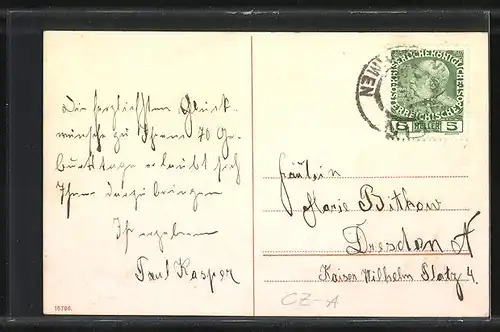 Die herzlichsten Glück-
wünsche zu Ihrem 70 Ge-
burtstage erlaubt sich
Ihnen darzubringen
Ihr ergebener
Paul Kasper
15786.
MEN
KAISERLICHE KÖNIGLICHE
ÖSTERREICHISCHE POST
5 HELLER 5
Fräulein
Marie Bitkow
Dresden A
Kaiser Wilhelm Platz 4.
CZ-A